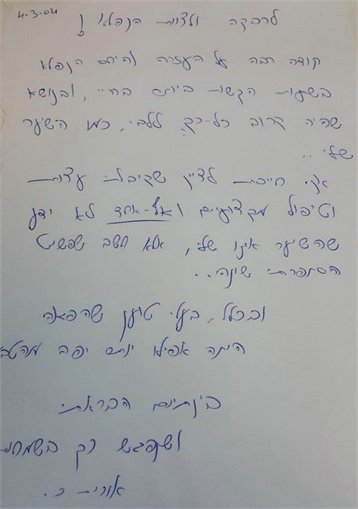 4.3.04
לרבקה ולצוות הנפלא!
תודה רבה על העזרה והיחס הנפלא
בשעות הקשות ביותר בחיי, ובנושא
שהיה קרוב כל-כך ללבי, כמו השיער
שלי..
אני חייבת לציין שקיבלתי עצות
וטיפול מקצועיים ואף-אחד לא ידע
שהשיער אינו שלי, אלא חשב שפשוט
הסתפרתי שונה..
ובכלל, בעלי טוען שהפאה
היתה אפילו יותר יפה מהטבעי
בינתיים הבראתי
ושנפגש רק בשמחות
אורית כ.